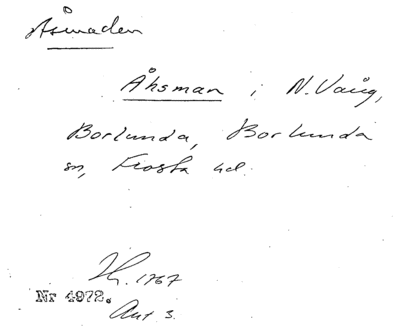 Åsmaden
Åhsman i N. Vång,
Borlunda, Borlunda
sn, Frosta hd.
1767
Nr 4972.
Akt 3.